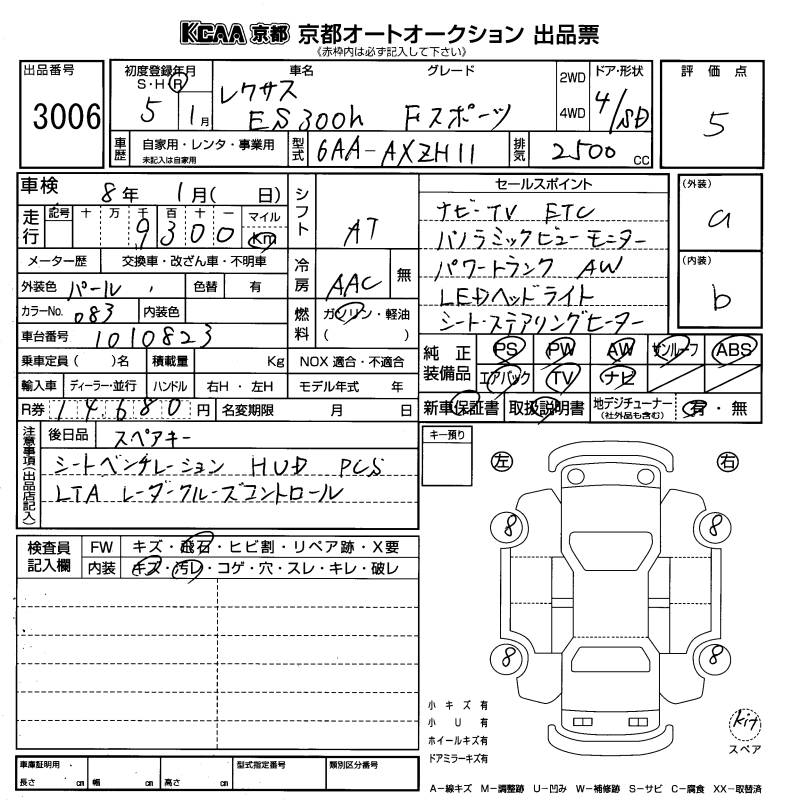 KCAA 京都 京都オートオークション 出品票
《赤枠内は必ず記入して下さい》
出品番号
3006
初度登録年月
S・H・R
5 1月
車名
レクサス
ES300h
グレード
Fスポーツ
2WD
4WD
ドア・形状
4/SD
評価点
5
車歴
自家用・レンタ・事業用
未記入は自家用
型式
6AA-AXZH11
排気
2500 CC
車検
8年 1月( 日)
走行
記号 十 万 千 百 十 一
9300
マイル
km
シフト
AT
セールスポイント
ナビ-TV ETC
パノラミックビューモニター
パワートランク AW
LEDヘッドライト
シート・ステアリングヒーター
(外装)
a
(内装)
b
メーター歴 交換車・改ざん車・不明車
冷房
AAC
無
外装色 パール
色替 有
カラーNo. 083
内装色
燃料
ガソリン・軽油
( )
車台番号 1010823
乗車定員( )名 積載量 Kg NOX 適合・不適合
輸入車 ディーラー・並行 ハンドル 右H・左H モデル年式 年
R券 14680円 名変期限 月 日
純正装備品
PS PW AW サンルーフ ABS
エアバック TV ナビ
新車保証書 取扱説明書 地デジチューナー
(社外品も含む)
有・無
注意事項(出品店記入)
後日品 スペアキー
シートベンチレーション HUD PCS
LTA レーダークルーズコントロール
キー預り
左
右
8
8
8
8
検査員記入欄
FW キズ・飛石・ヒビ割・リペア跡・X要
内装 キズ・汚レ・コゲ・穴・スレ・キレ・破レ
小キズ有
小U有
ホイールキズ有
ドアミラーキズ有
kit
スペア
車庫証明用
長さ cm 幅 cm 高さ cm
型式指定番号
類別区分番号
A-線キズ M-調整跡 U-凹み W-補修跡 S-サビ C-腐食 XX-取替済